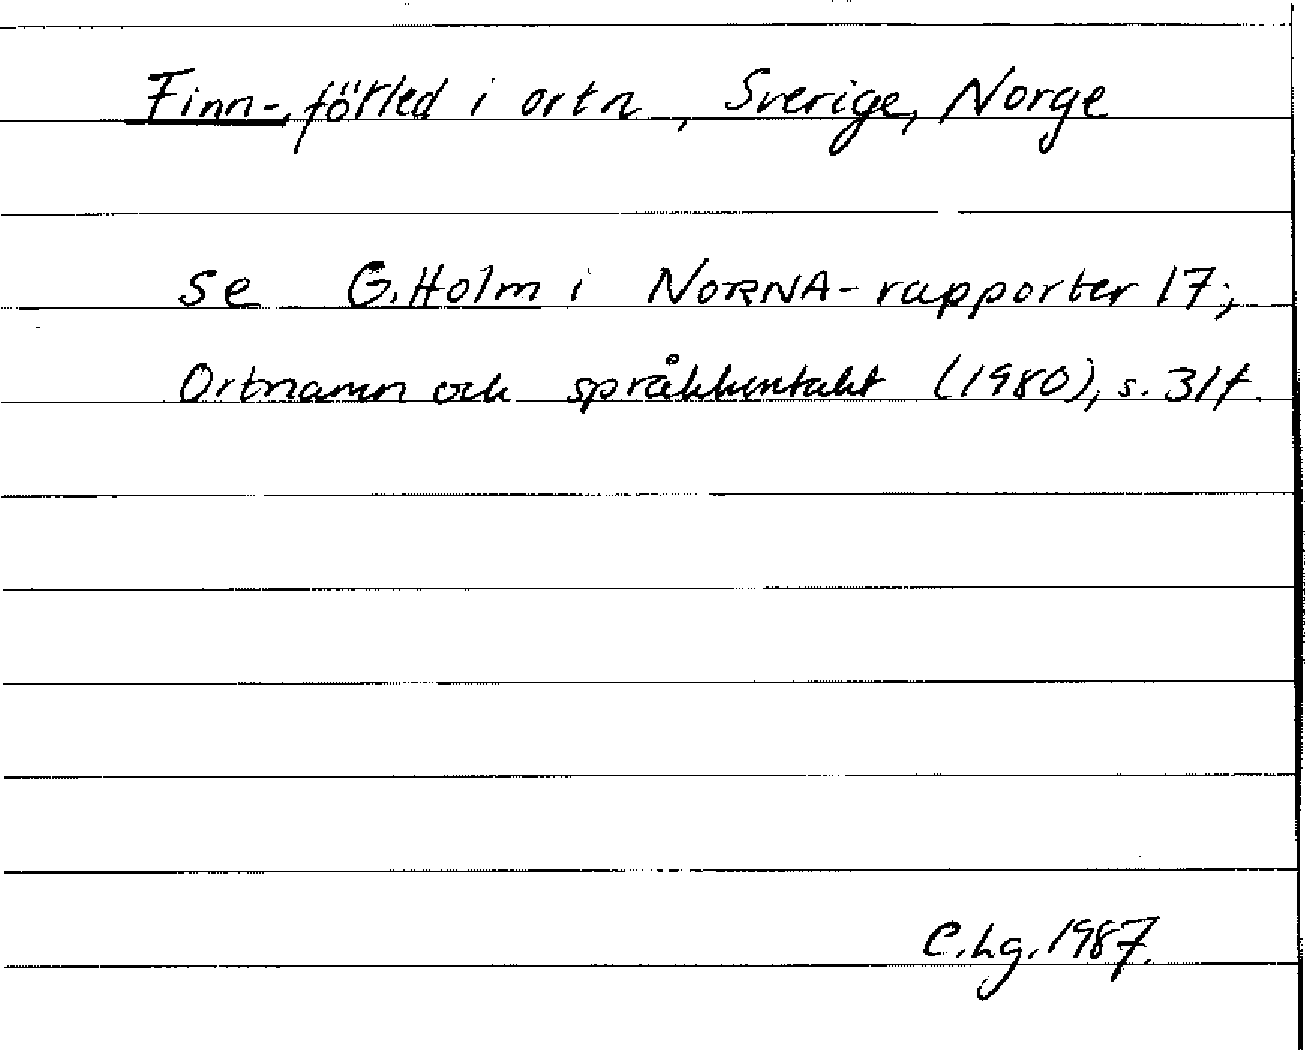 Finn-, förled i ortn, Sverige, Norge
se G. Holm i NORNA-rapporter 17;
Ortnamn och språkkontakt (1980), s. 31f.
C. Lg. 1987.